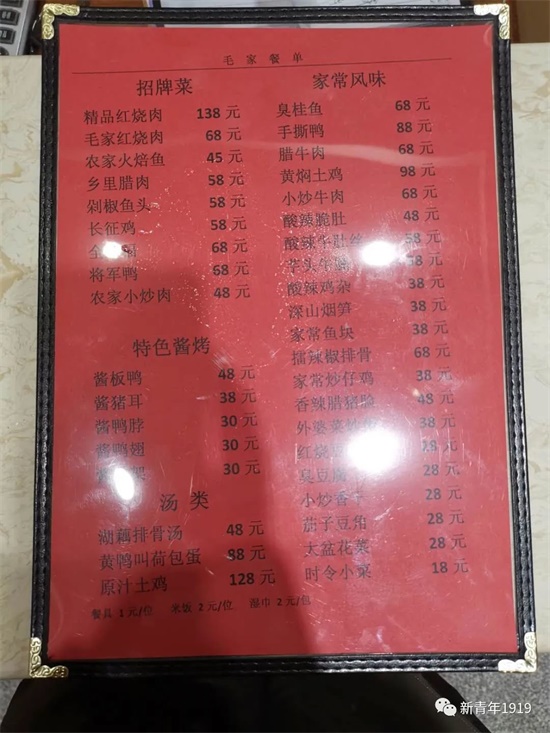 毛家餐单
招牌菜
精品红烧肉 138 元
毛家红烧肉 68 元
农家火焙鱼 45 元
乡里腊肉 58 元
剁椒鱼头 58 元
长征鸡 58 元
全 福 68 元
将军鸭 68 元
农家小炒肉 48 元
特色酱烤
酱板鸭 48 元
酱猪耳 38 元
酱鸭脖 30 元
酱鸭翅 30 元
架 30 元
汤类
湖藕排骨汤 48 元
黄鸭叫荷包蛋 88 元
原汁土鸡 128 元
餐具 1元/位 米饭 2元/位 湿巾 2元/包
家常风味
臭桂鱼 68 元
手撕鸭 88 元
腊牛肉 68 元
黄焖土鸡 98 元
小炒牛肉 68 元
酸辣脆肚 48 元
酸辣牛肚丝 58 元
芋头牛 58 元
酸辣鸡杂 38 元
深山烟笋 38 元
家常鱼块 38 元
擂辣椒排骨 68 元
家常炒仔鸡 38 元
香辣腊猪脸 48 元
外婆菜炒 38 元
红烧 28 元
臭豆腐 28 元
小炒香干 28 元
茄子豆角 28 元
大盆花菜 28 元
时令小菜 18 元
新青年1919